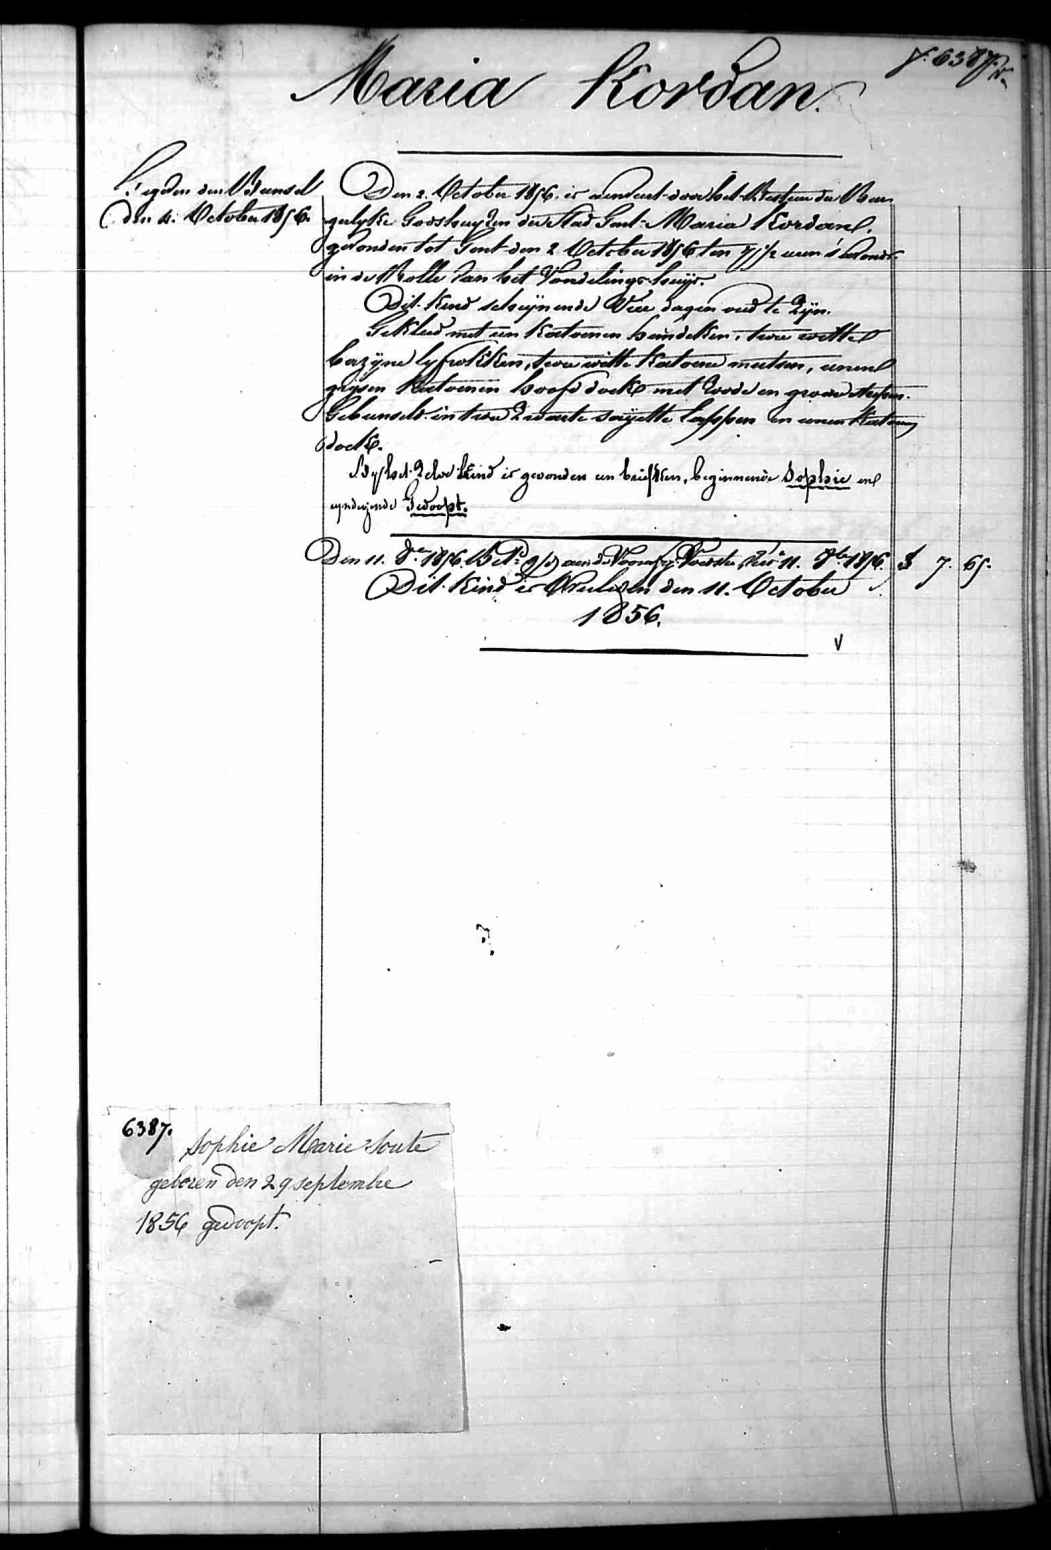 6387.
Maria Kordan.
den 4. October 1856.
Den 2. October 1856. is aenveert door het Bestuer der Bur-
gelyke Godshuyzen der stad Gent: Maria Kordan,
gevonden tot Gent den 2 October 1856 ten 7 1/2 uren 's avonds
in de Rolle van het Vondelings-huys.
Dit Kind schynende Vier dagen oud te zyn.
Gekleed met een Katoenen hemdeken, twee witte
bazyne lyfrokken, twee witte Katoene mutsen, eenen
grysen Katoenen hoofddoek met roode en groene strepen.
Gebunseld in twee zwarte sayette lappen en eenen Katoenen
doek.
By het zelve Kind is gevonden een briefken, beginnende Sophie en
eyndigende Gedoopt.
Den 11. 8er 1856. aen de 11. 8ber 1856. 7. 65.
Dit Kind is Overleden den 11. October
1856.
V
6387.
Sophie Marie Soute
geboren den 29 septembre
1856 gedoopt.